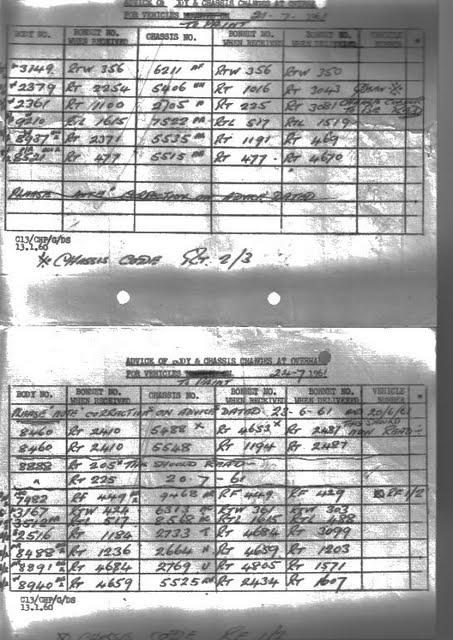 ADVICE OF BODY & CHASSIS CHANGES AT OVERHAUL
FOR VEHICLES 21-7-1961
TO PAINT
BODY NO. BONNET NO. WHEN RECEIVED CHASSIS NO. BONNET NO. WHEN RECEIVED BONNET NO. WHEN DELIVERED VEHICLE NUMBER
3149 RTW 356 6211 RTW 356 RTW 350
2379 RT 2254 5406 RT 1016 RT 3043
2361 RT 1100 2705 RT 225 RT 3081 CHANGE COLOUR TO BE RED
9210 RTL 1615 7522 RTL 517 RTL 1519
8937 RT 2371 5535 RT 1191 RT 469
8521 RT 477 5515 RT 477 RT 4670
PLEASE NOTE CORRECTION ON ADVICE DATED
C13/CHP/G/DS
13.1.60
※ CHASSIS CODE RT. 2/3
ADVICE OF BODY & CHASSIS CHANGES AT OVERHAUL
FOR VEHICLES 24-7 1961
TO PAINT
BODY NO. BONNET NO. WHEN RECEIVED CHASSIS NO. BONNET NO. WHEN RECEIVED BONNET NO. WHEN DELIVERED VEHICLE NUMBER
PLEASE NOTE CORRECTION ON ADVICE DATED 23-6-61 AND 20/6/61
8460 RT 2410 5488 X RT 4653 X RT 2481 THIS SHOULD NOW READ-
8460 RT 2410 5548 RT 1194 RT 2487
8288 RT 205 THIS SHOULD READ
" RT 225 20-7-61
7982 RF 449 9468 RF 449 RF 429 RF 1/2
3167 RTW 424 6313 RTW 361 RTW 303
3510 RTL 517 8568 RTL 1615 RTL 488
2516 RT 1184 2733 RT 4684 RT 3099
8488 RT 1236 2664 RT 4659 RT 1203
8891 RT 4684 2769 RT 4805 RT 1571
8940 RT 4659 5525 RT 2434 RT 1607
C13/CHP/G/DS
13.1.60
CHASSIS CODE RF 1/2